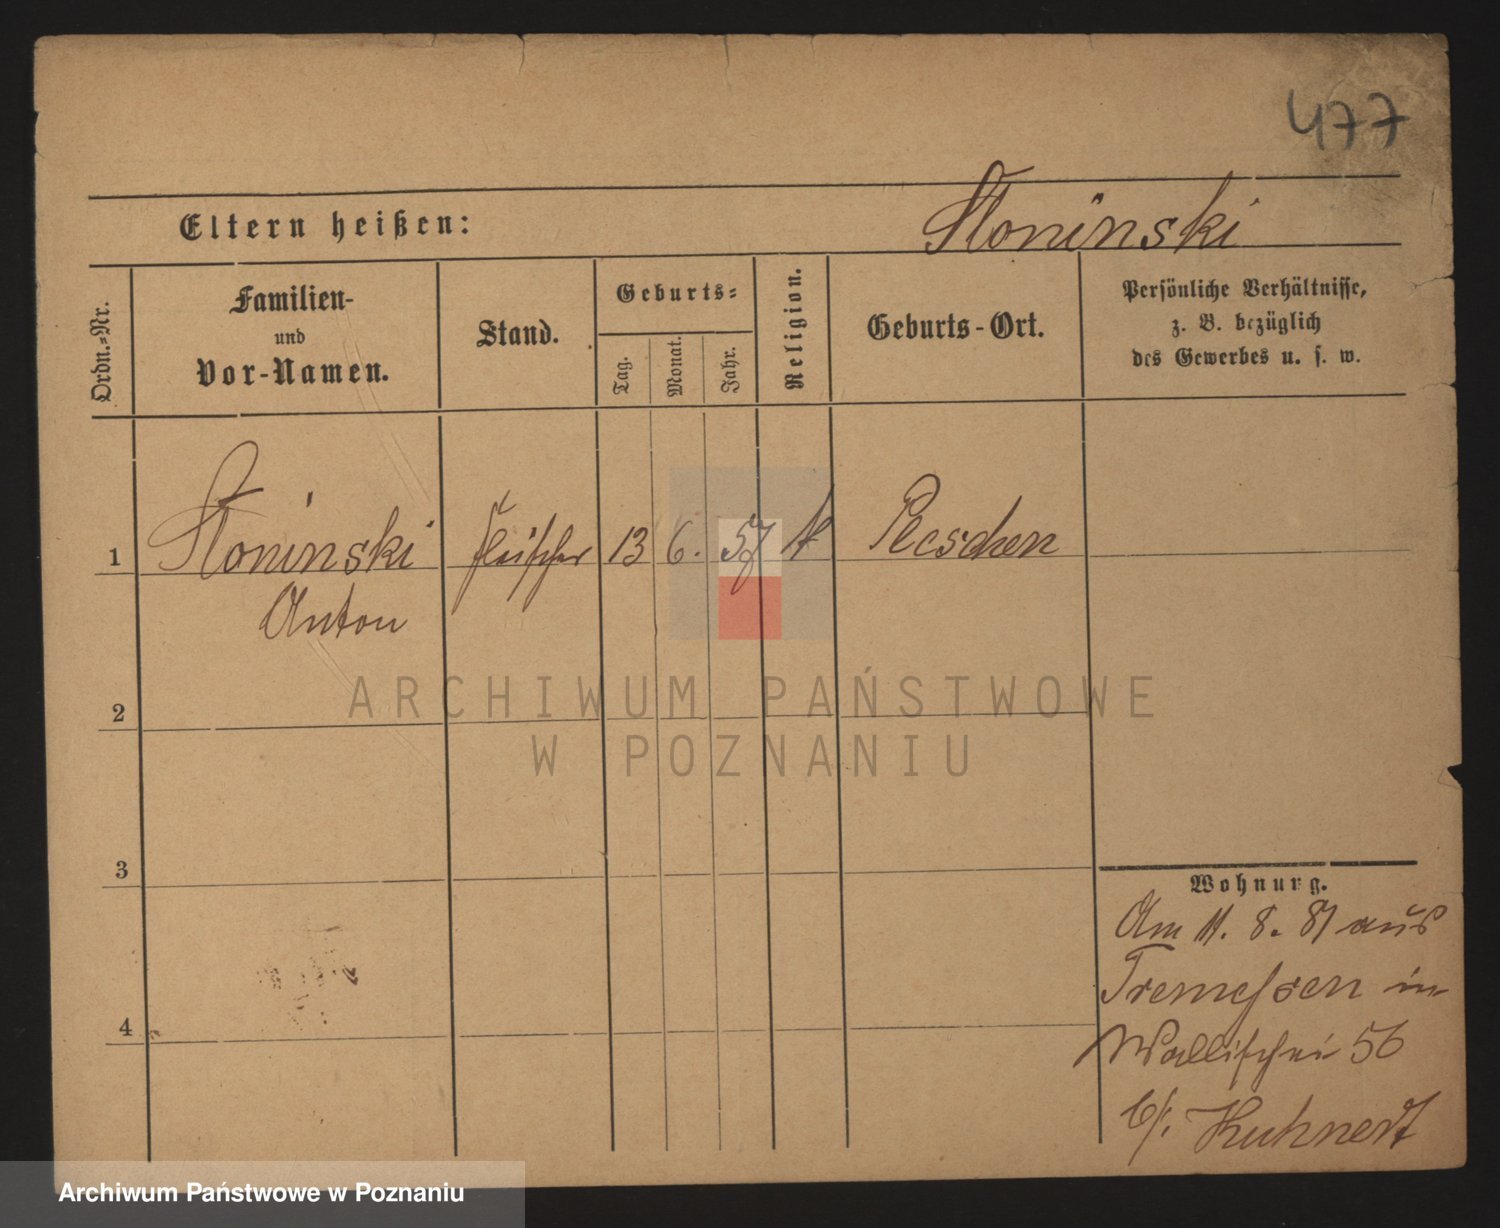 477
Eltern heißen:
Słoninski
Ordn.-Nr.
Familien-
und
Vor-Namen.
Stand.
Geburts-
Tag.
Monat.
Jahr.
Religion.
Geburts-Ort.
Persönliche Verhältnisse,
z. B. bezüglich
des Gewerbes u. s. w.
1 Słoninski Fleischer 13 6. 57 k Pleschen
Anton
2
3
4
Wohnung.
Am 11. 8. 81 aus
Tremessen in
Wallischei 56
b/. Kuhnert
ARCHIWUM PAŃSTWOWE
W POZNANIU
Archiwum Państwowe w Poznaniu